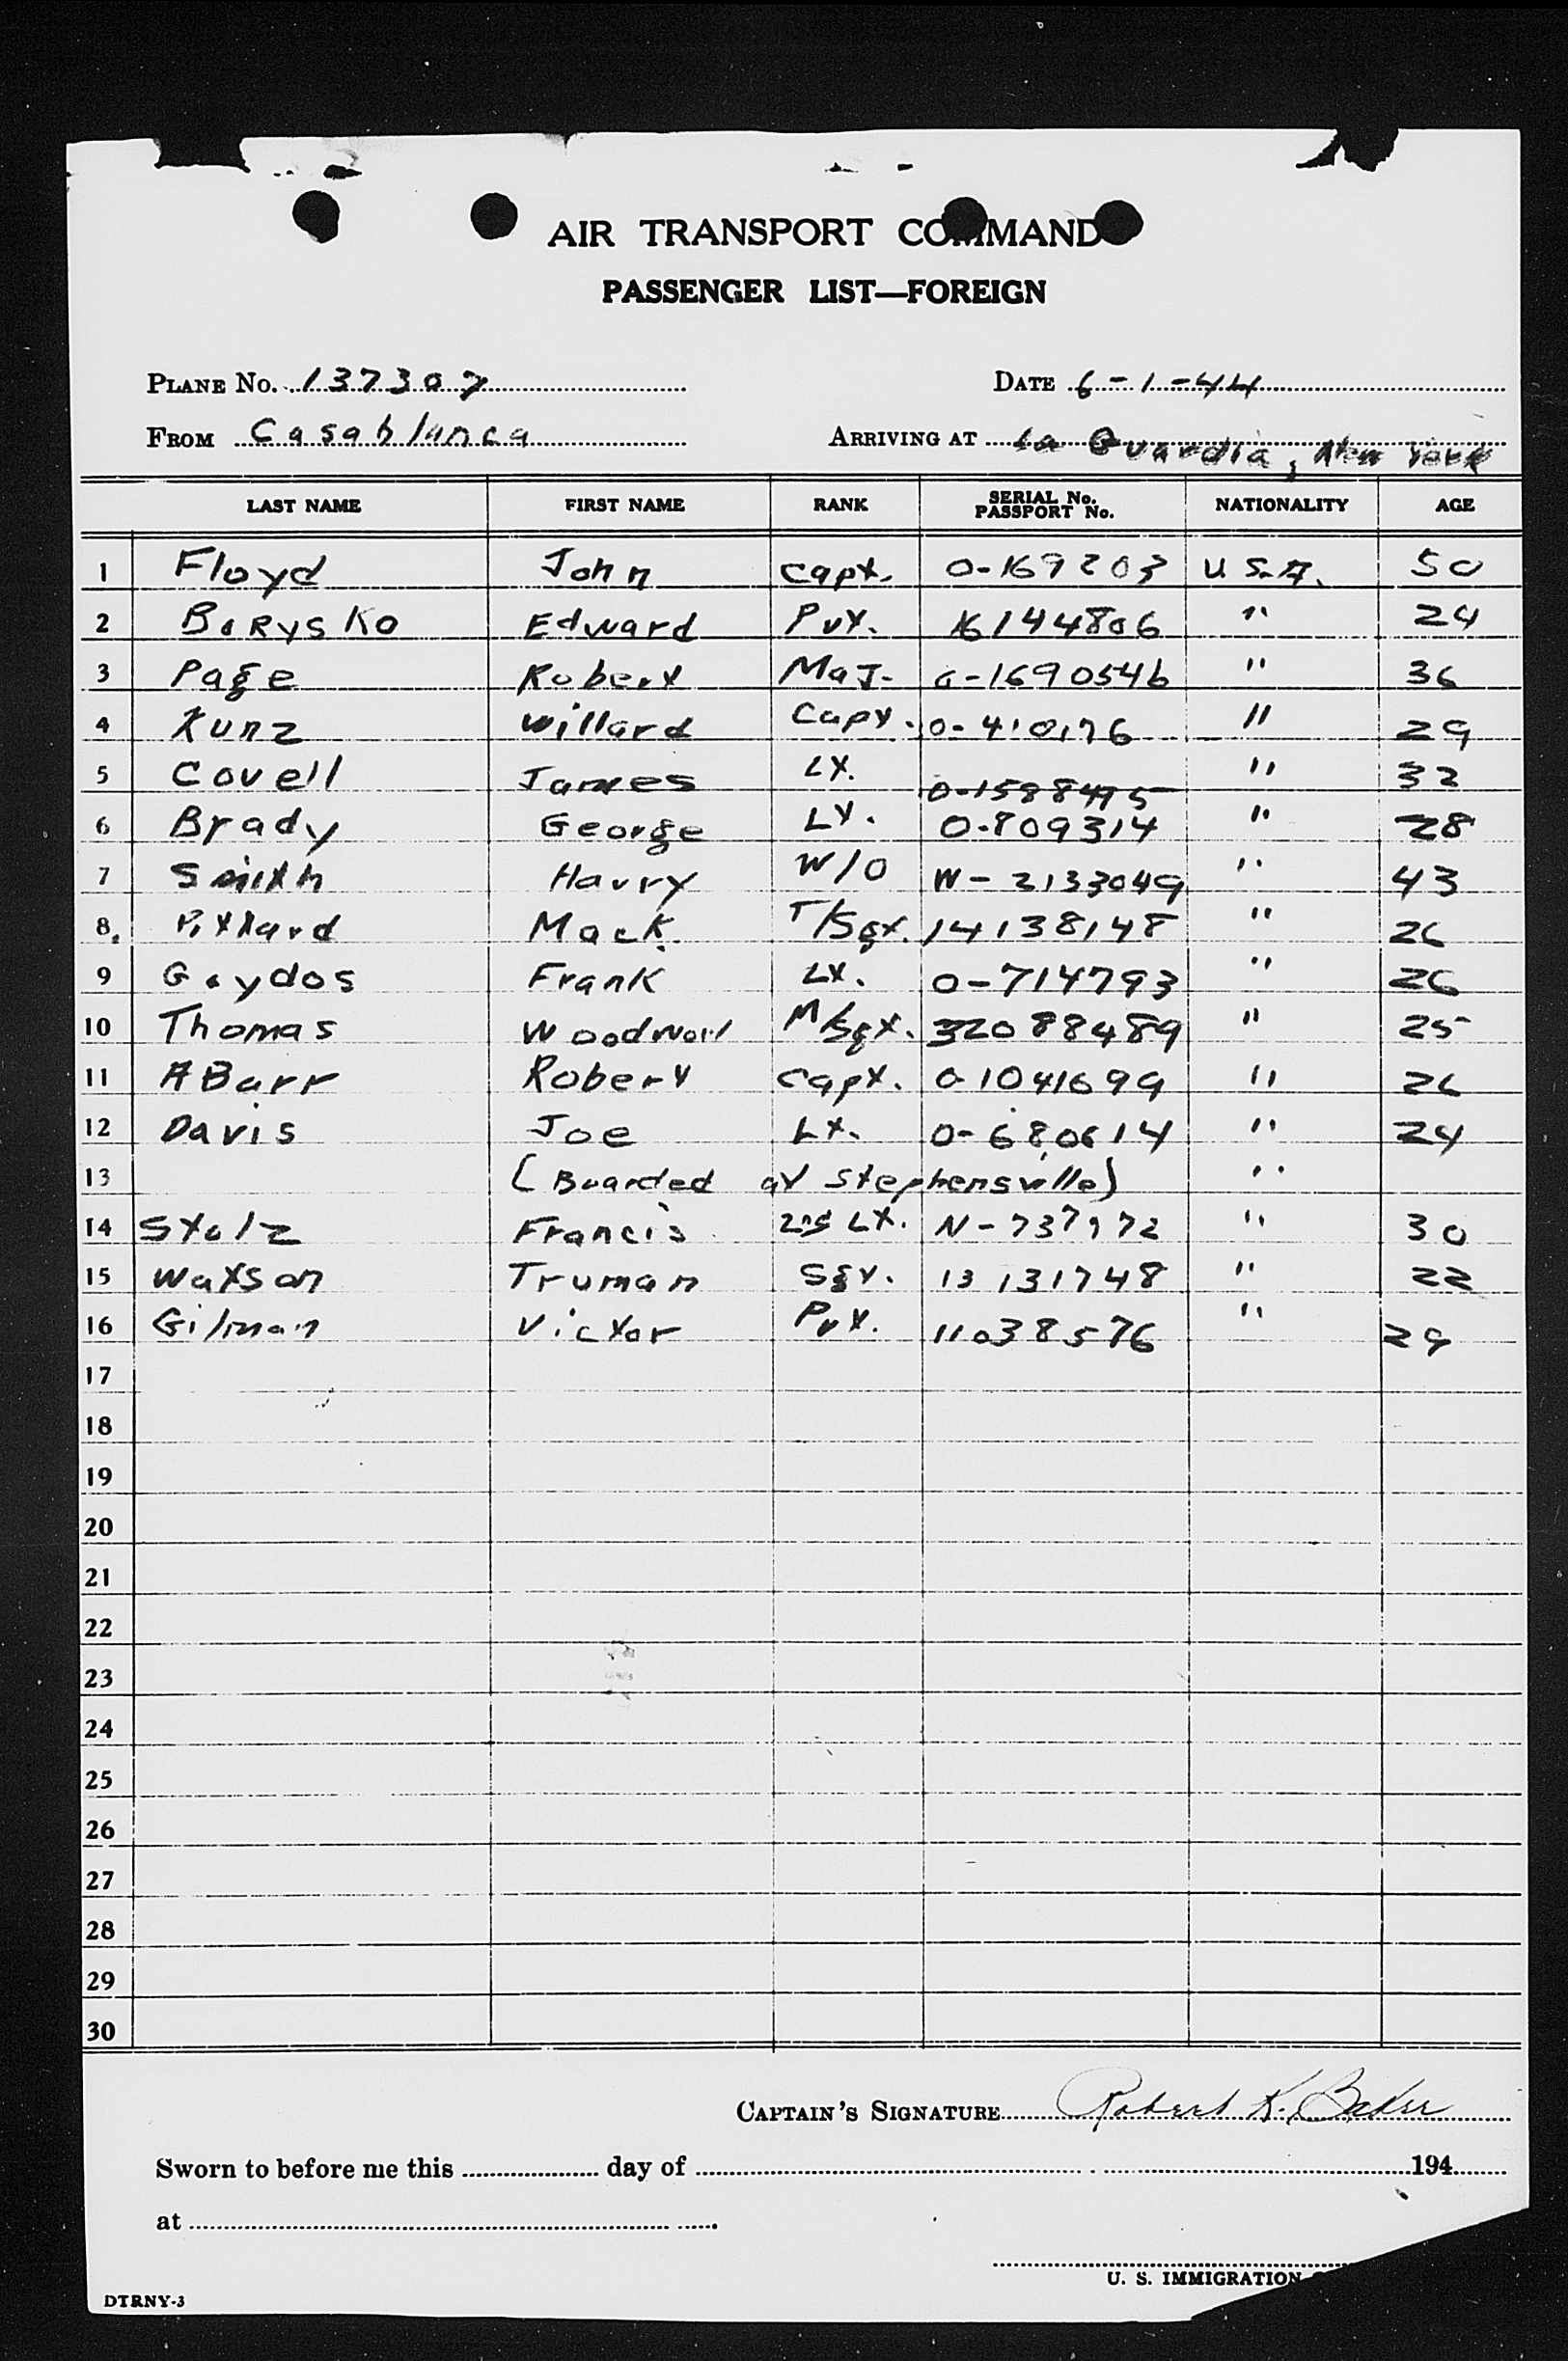 AIR TRANSPORT COMMAND
PASSENGER LIST—FOREIGN
PLANE No. 137307 DATE 6-1-44
FROM Casablanca ARRIVING AT La Guardia, New York
LAST NAME FIRST NAME RANK SERIAL No. PASSPORT No. NATIONALITY AGE
1 Floyd John Capt. O-169203 U.S.A. 50
2 Borysko Edward Pvt. 16144806 " 24
3 Page Robert Maj. O-1690546 " 36
4 Kunz Willard Capt. O-410176 " 29
5 Covell James Lt. " 32
6 Brady George Lt. O-809314 " 28
7 Smith Harry W/O W-2133049 " 43
8 Pittard Mack T/Sgt. 14138148 " 26
9 Gaydos Frank Lt. O-714793 " 26
10 Thomas M/Sgt. 32088489 " 25
11 ABarr Robert Capt. O-1041699 " 26
12 Davis Joe Lt. O-680614 " 24
13 (Boarded at Stephensville) "
14 Stolz Francis 2nd Lt. N-737972 " 30
15 Watson Truman Sgt. 13131748 " 22
16 Gilman Victor Pvt. 11038576 " 29
17
18
19
20
21
22
23
24
25
26
27
28
29
30
CAPTAIN'S SIGNATURE Robert K. Baker
Sworn to before me this day of 194
at
U. S. IMMIGRATION
DTRNY-3